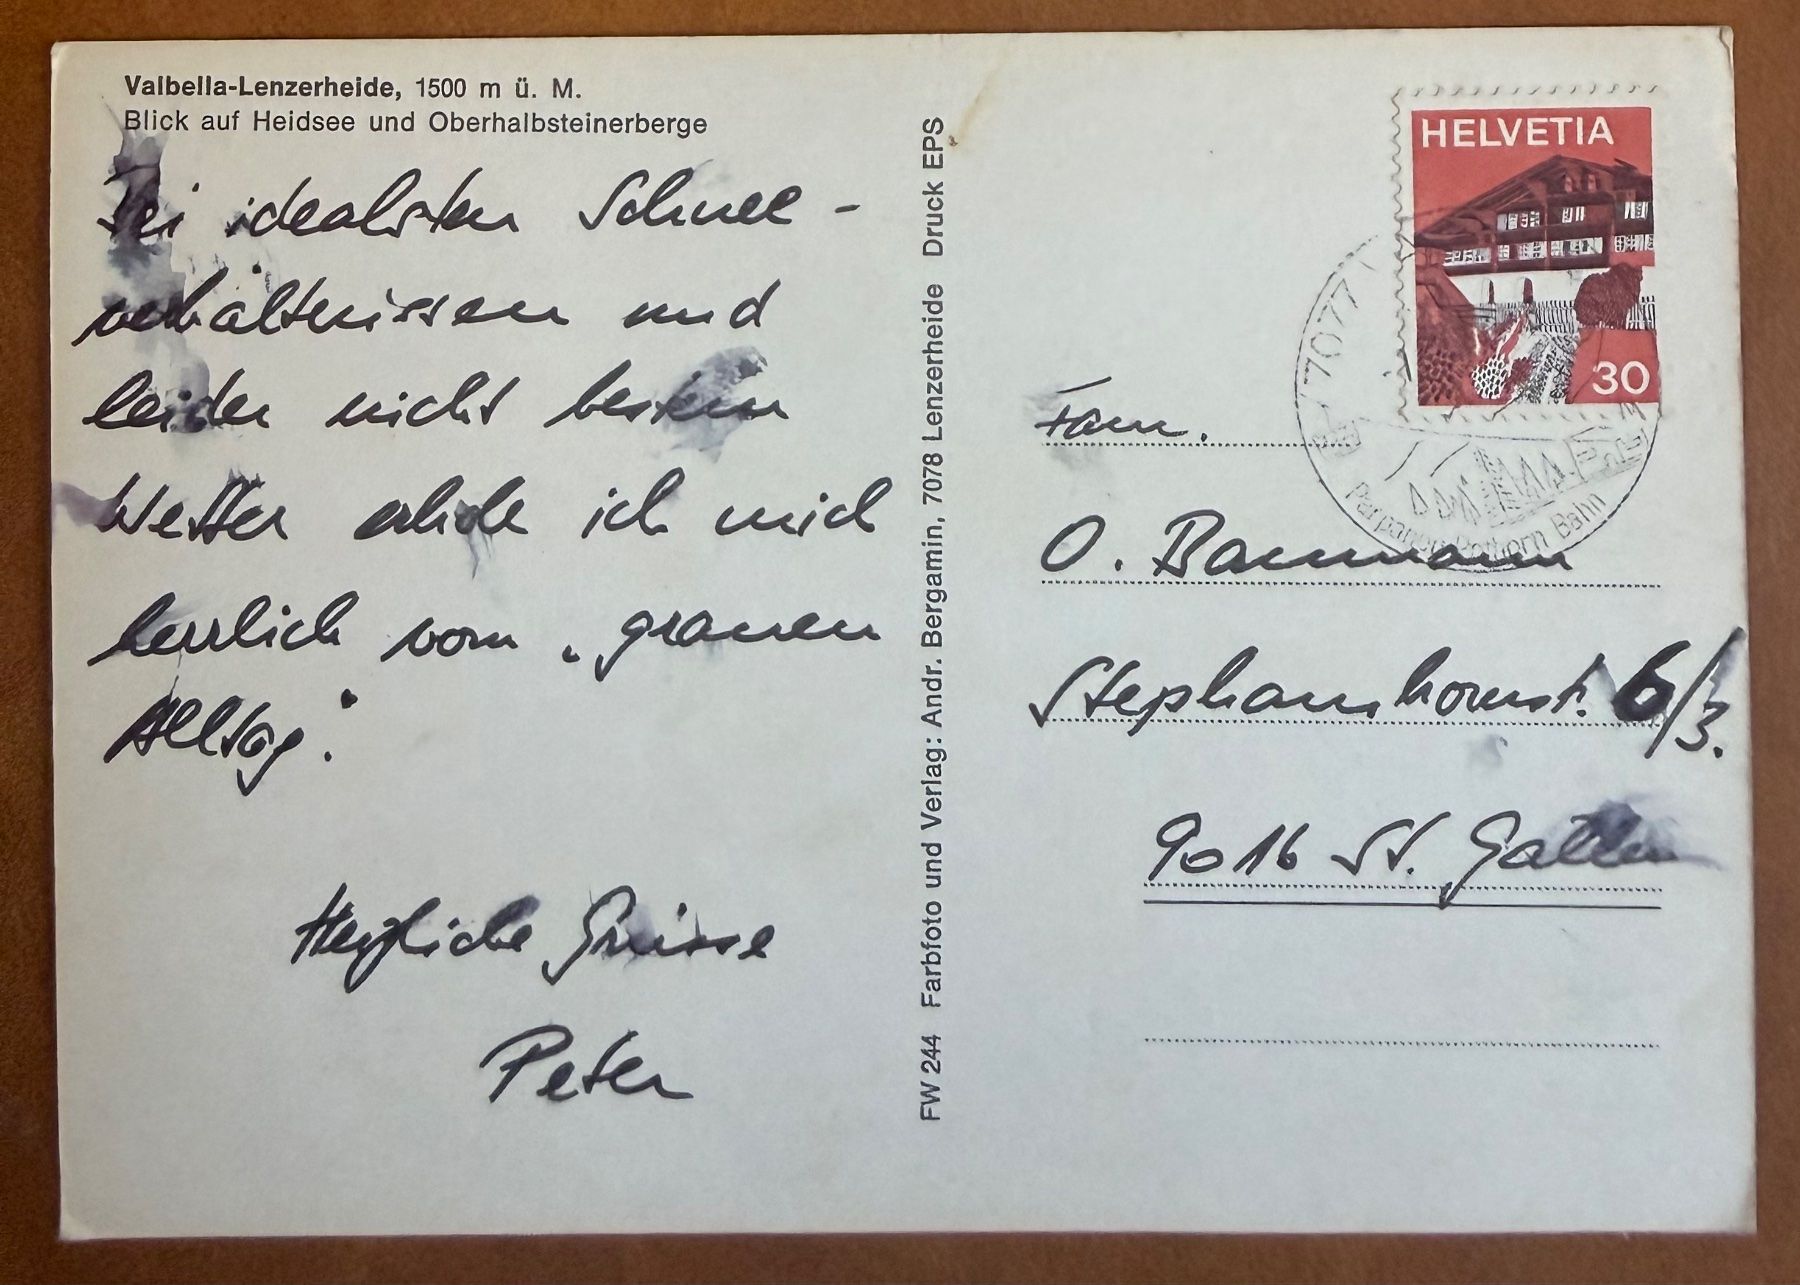 Valbella-Lenzerheide, 1500 m ü. M.
Blick auf Heidsee und Oberhalbsteinerberge
Bei idealsten Schnee-
verhältnissen und
leider nicht bestem
Wetter erhole ich mich
herrlich vom „grauen
Alltag".
Herzliche Grüsse
Peter
FW 244 Farbfoto und Verlag: Andr. Bergamin, 7078 Lenzerheide Druck EPS
HELVETIA
30
7077
Parpaner Rothorn Bahn
Fam.
O. Baumann
Stephanshornst. 6/3.
9016 St. Gallen